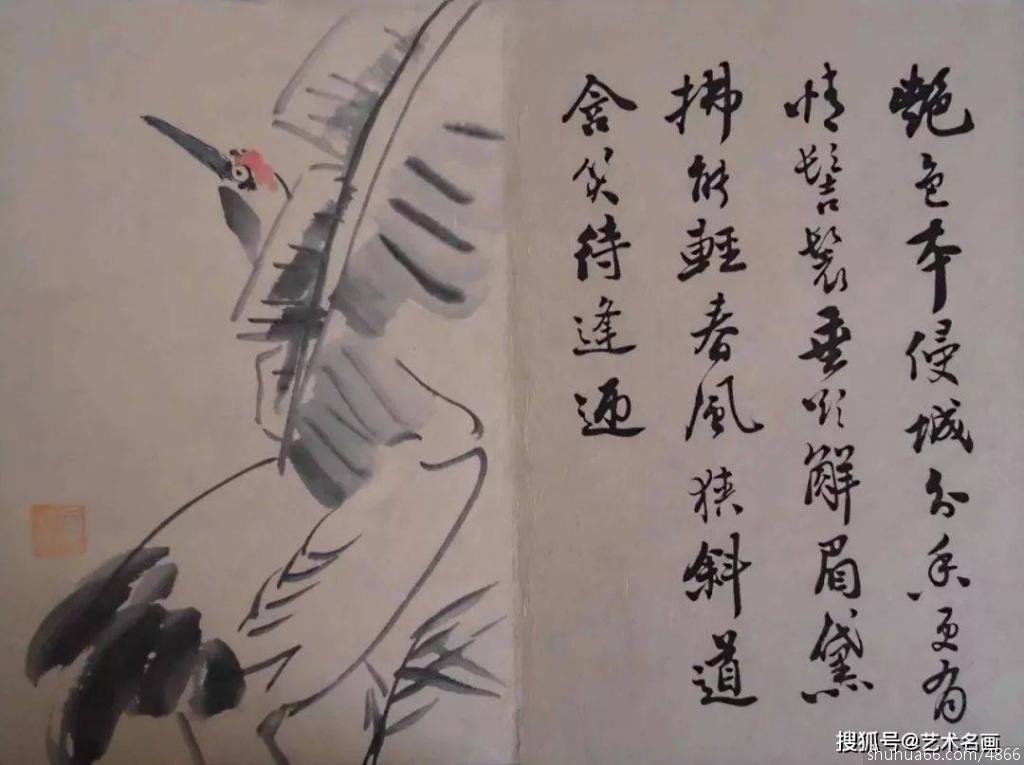 艷色本侵城分香更有
情髻鬟垂欲解眉黛
拂能輕春風狹斜道
含笑待逢迎
搜狐号@艺术名画
shuhua66.com/4866